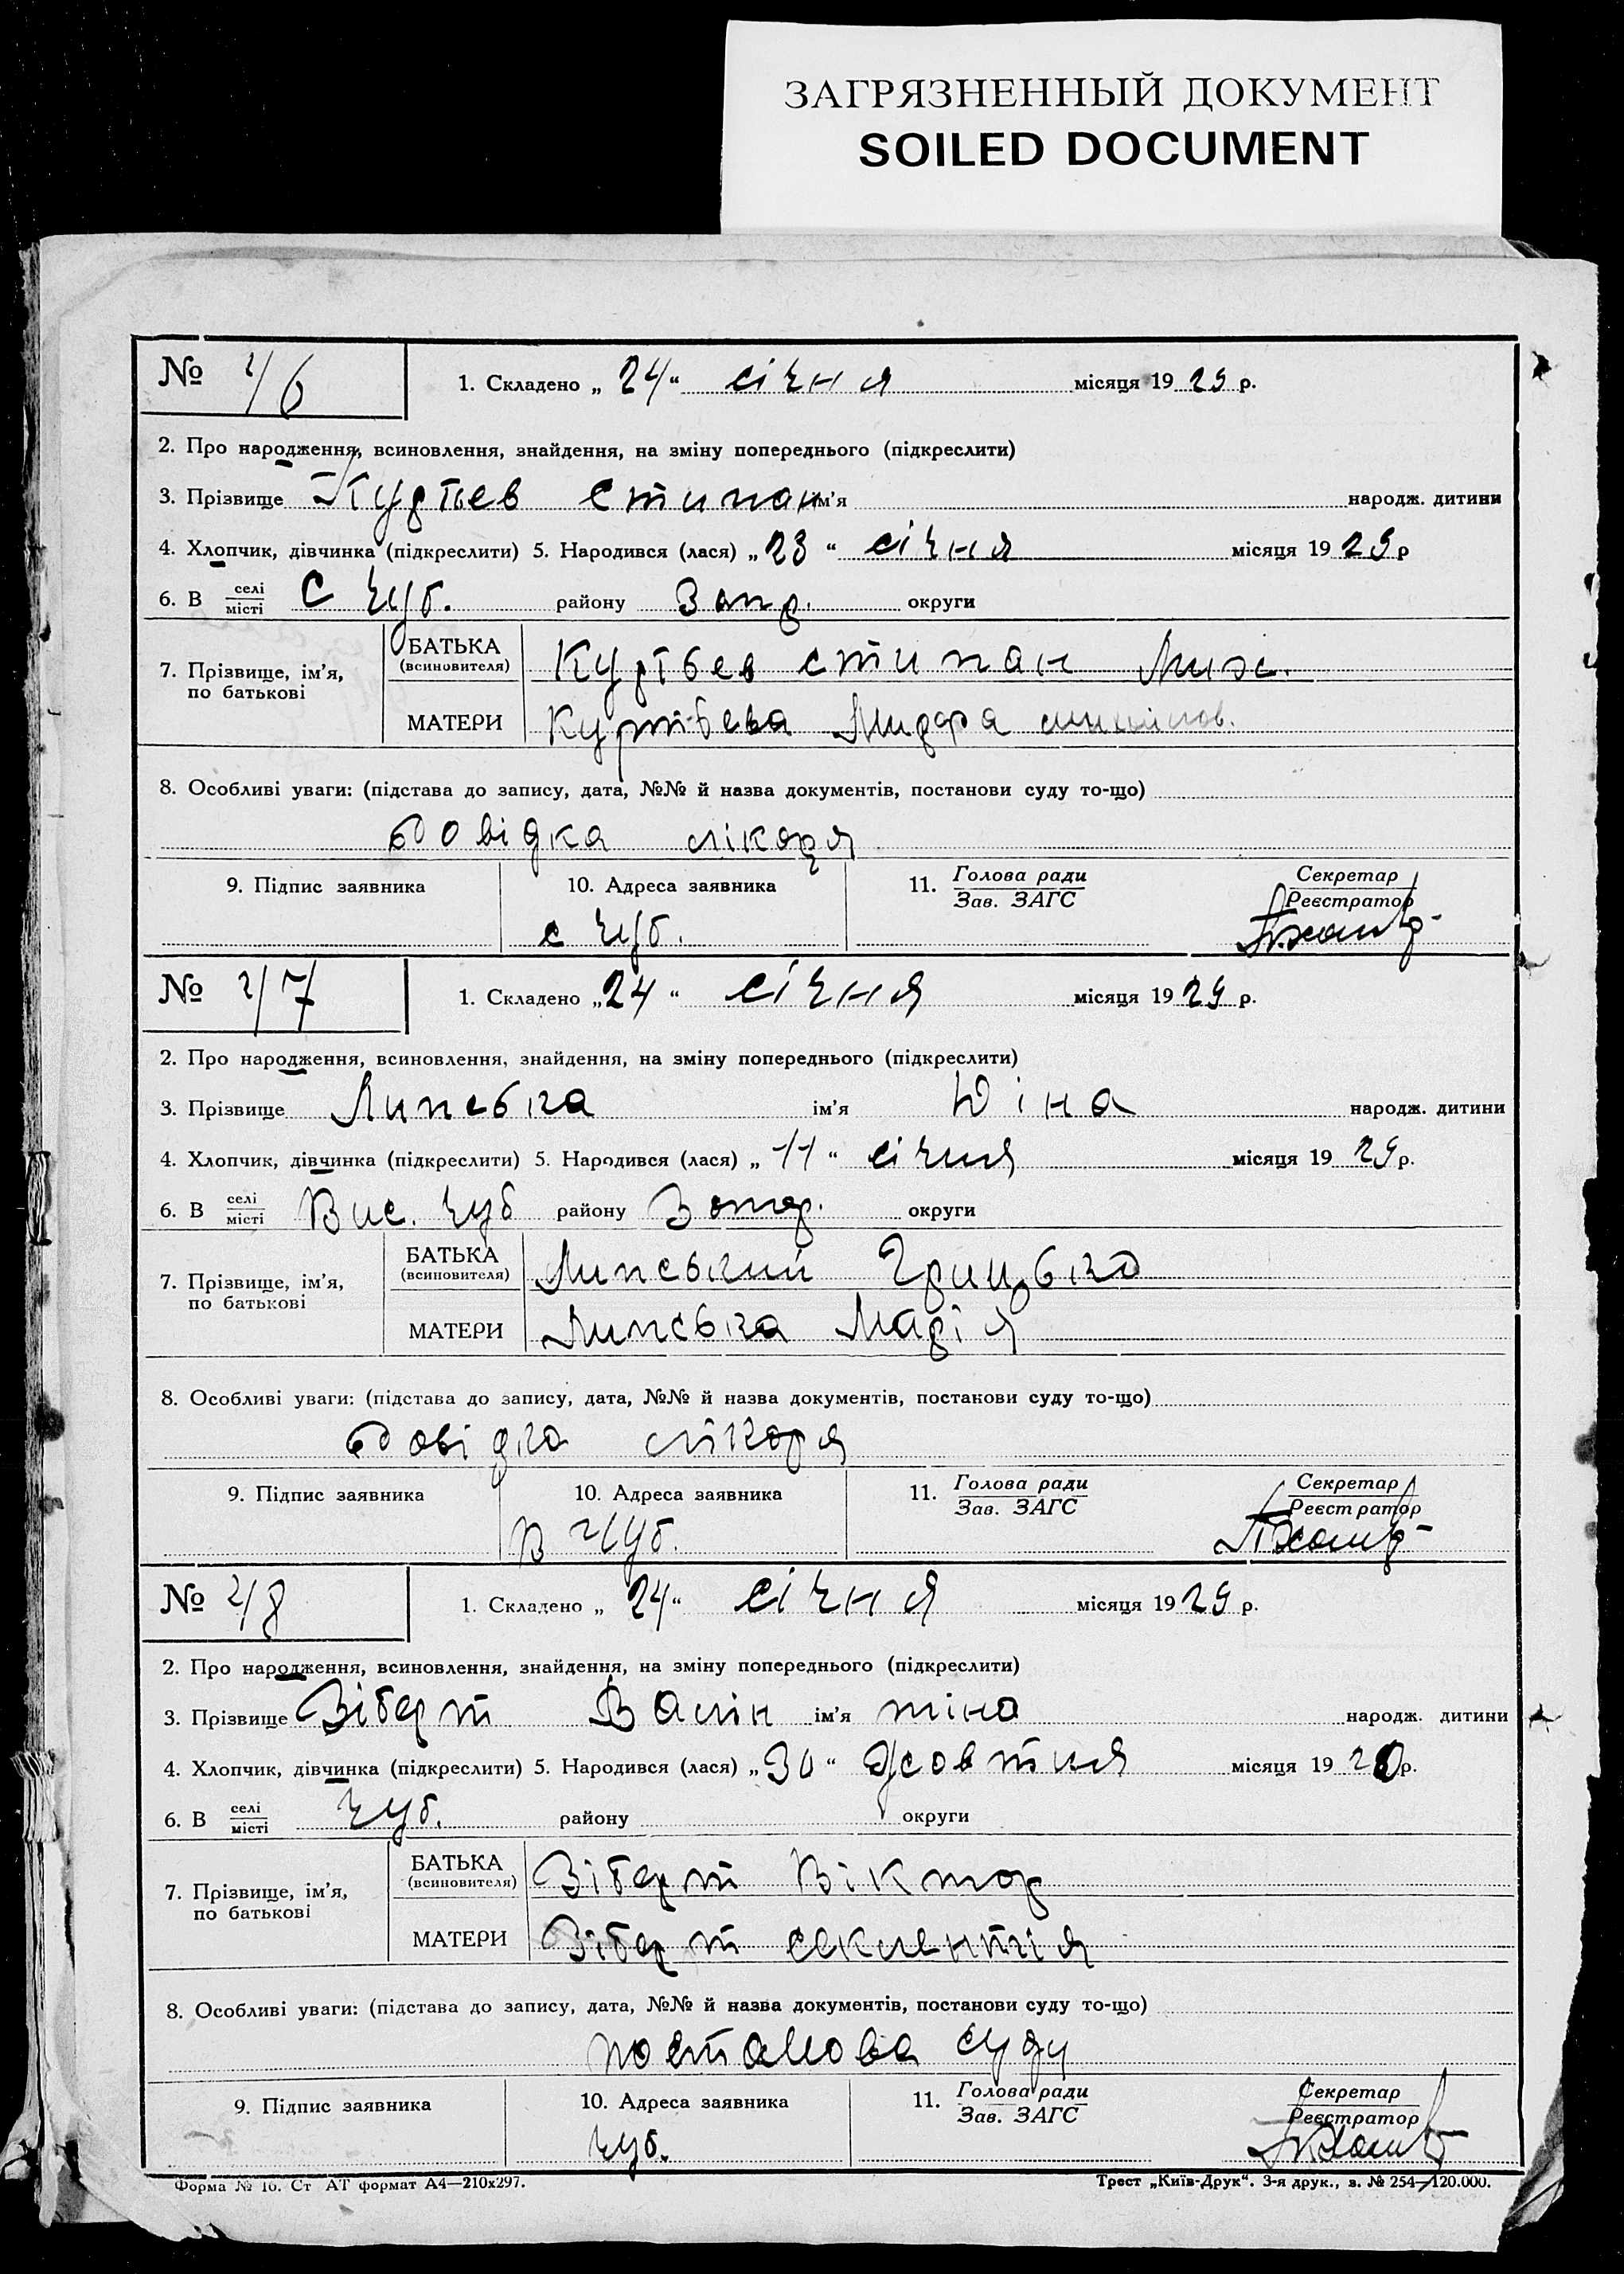 ЗАГРЯЗНЕННЫЙ ДОКУМЕНТ
SOILED DOCUMENT
№ 2/6 1. Складено „24“ січня місяця 1929 р.
2. Про народження, всиновлення, знайдення, на зміну попереднього (підкреслити)
3. Прізвище Куртьев Степан ім'я народж. дитини
4. Хлопчик, дівчинка (підкреслити) 5. Народився (лася) „23“ січня місяця 1929 р
6. В селі/місті С Чуб. району Запр. округи
7. Прізвище, ім'я, по батькові
БАТЬКА (всиновителя) Куртьев степан Мих.
МАТЕРИ Куртьева
8. Особливі уваги: (підстава до запису, дата, №№ й назва документів, постанови суду то-що)
Довідка лікаря
9. Підпис заявника 10. Адреса заявника 11. Голова ради/Зав. ЗАГС Секретар/Реєстратор
с Чуб.
№ 2/7 1. Складено „24“ січня місяця 1929 р.
2. Про народження, всиновлення, знайдення, на зміну попереднього (підкреслити)
3. Прізвище Липська ім'я Юіна народж. дитини
4. Хлопчик, дівчинка (підкреслити) 5. Народився (лася) „11“ січня місяця 1929 р.
6. В селі/місті Вис. Чуб району Запор. округи
7. Прізвище, ім'я, по батькові
БАТЬКА (всиновителя) Липський Грицько
МАТЕРИ Липська Марія
8. Особливі уваги: (підстава до запису, дата, №№ й назва документів, постанови суду то-що)
Довідка лікаря
9. Підпис заявника 10. Адреса заявника 11. Голова ради/Зав. ЗАГС Секретар/Реєстратор
В Чуб.
№ 2/8 1. Складено „24“ січня місяця 1929 р.
2. Про народження, всиновлення, знайдення, на зміну попереднього (підкреслити)
3. Прізвище Зіберт Валін ім'я тіна народж. дитини
4. Хлопчик, дівчинка (підкреслити) 5. Народився (лася) „30“ жовтня місяця 192 р.
6. В селі/місті Чуб. району округи
7. Прізвище, ім'я, по батькові
БАТЬКА (всиновителя) Зіберт Віктор
МАТЕРИ Зіберт
8. Особливі уваги: (підстава до запису, дата, №№ й назва документів, постанови суду то-що)
постанова суду
9. Підпис заявника 10. Адреса заявника 11. Голова ради/Зав. ЗАГС Секретар/Реєстратор
Чуб.
Форма № 1б. Ст АТ формат А4—210х297. Трест „Київ-Друк“. 3-я друк., з. № 254—120.000.